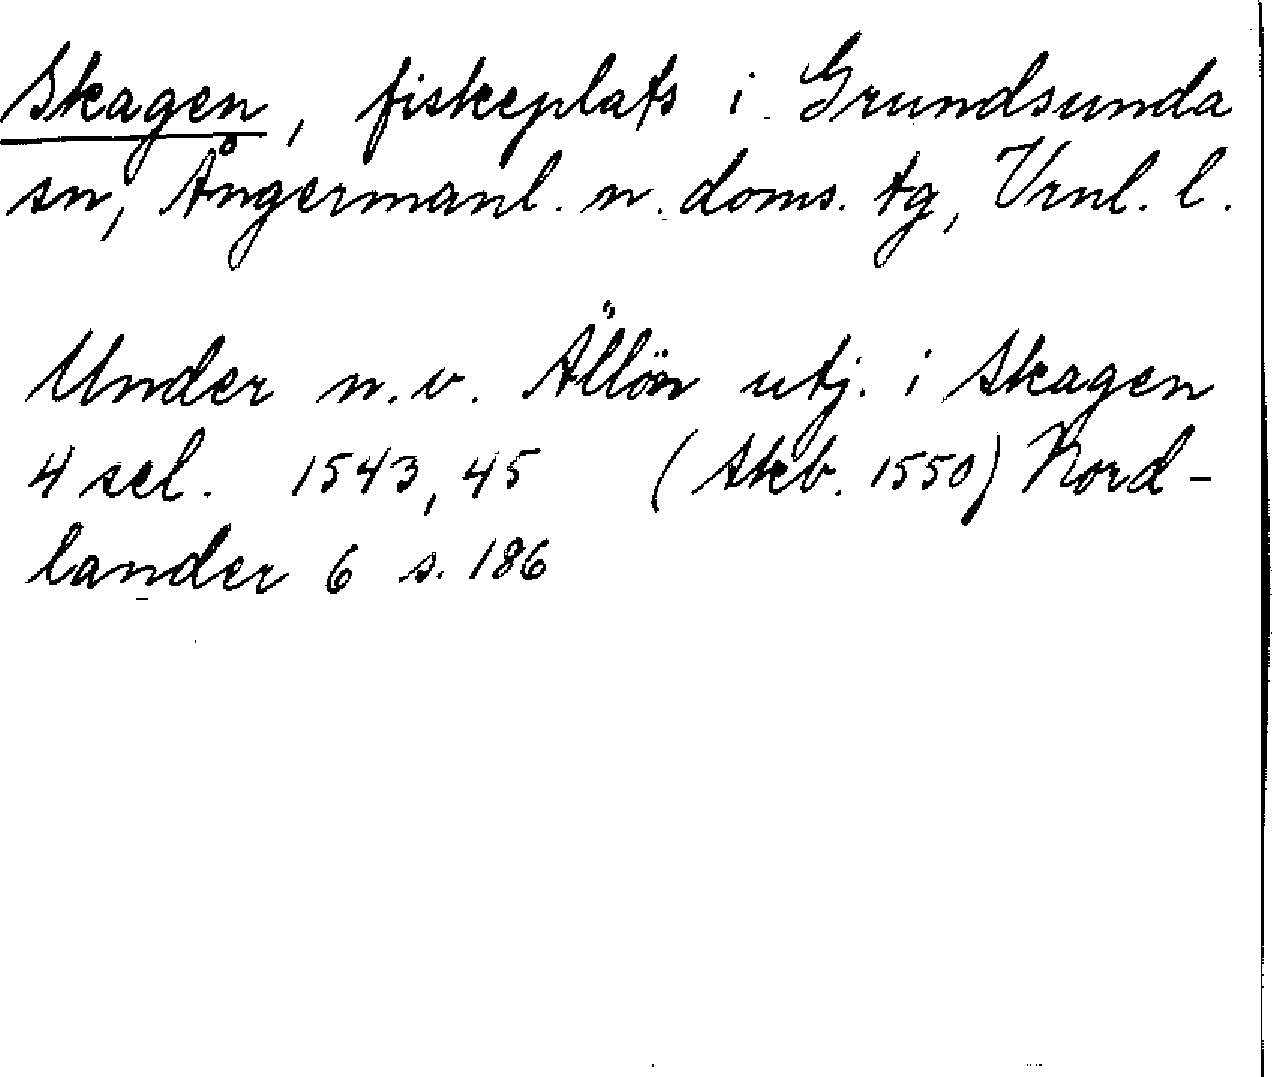 Skagen, fiskeplats i Grundsunda
sn, Ångermanl. n. doms. tg, Vrnl. l.
Under n.v. Ällön utj. i Skagen
4 sel. 1543, 45 (Skb. 1550) Nord-
lander 6 s. 186